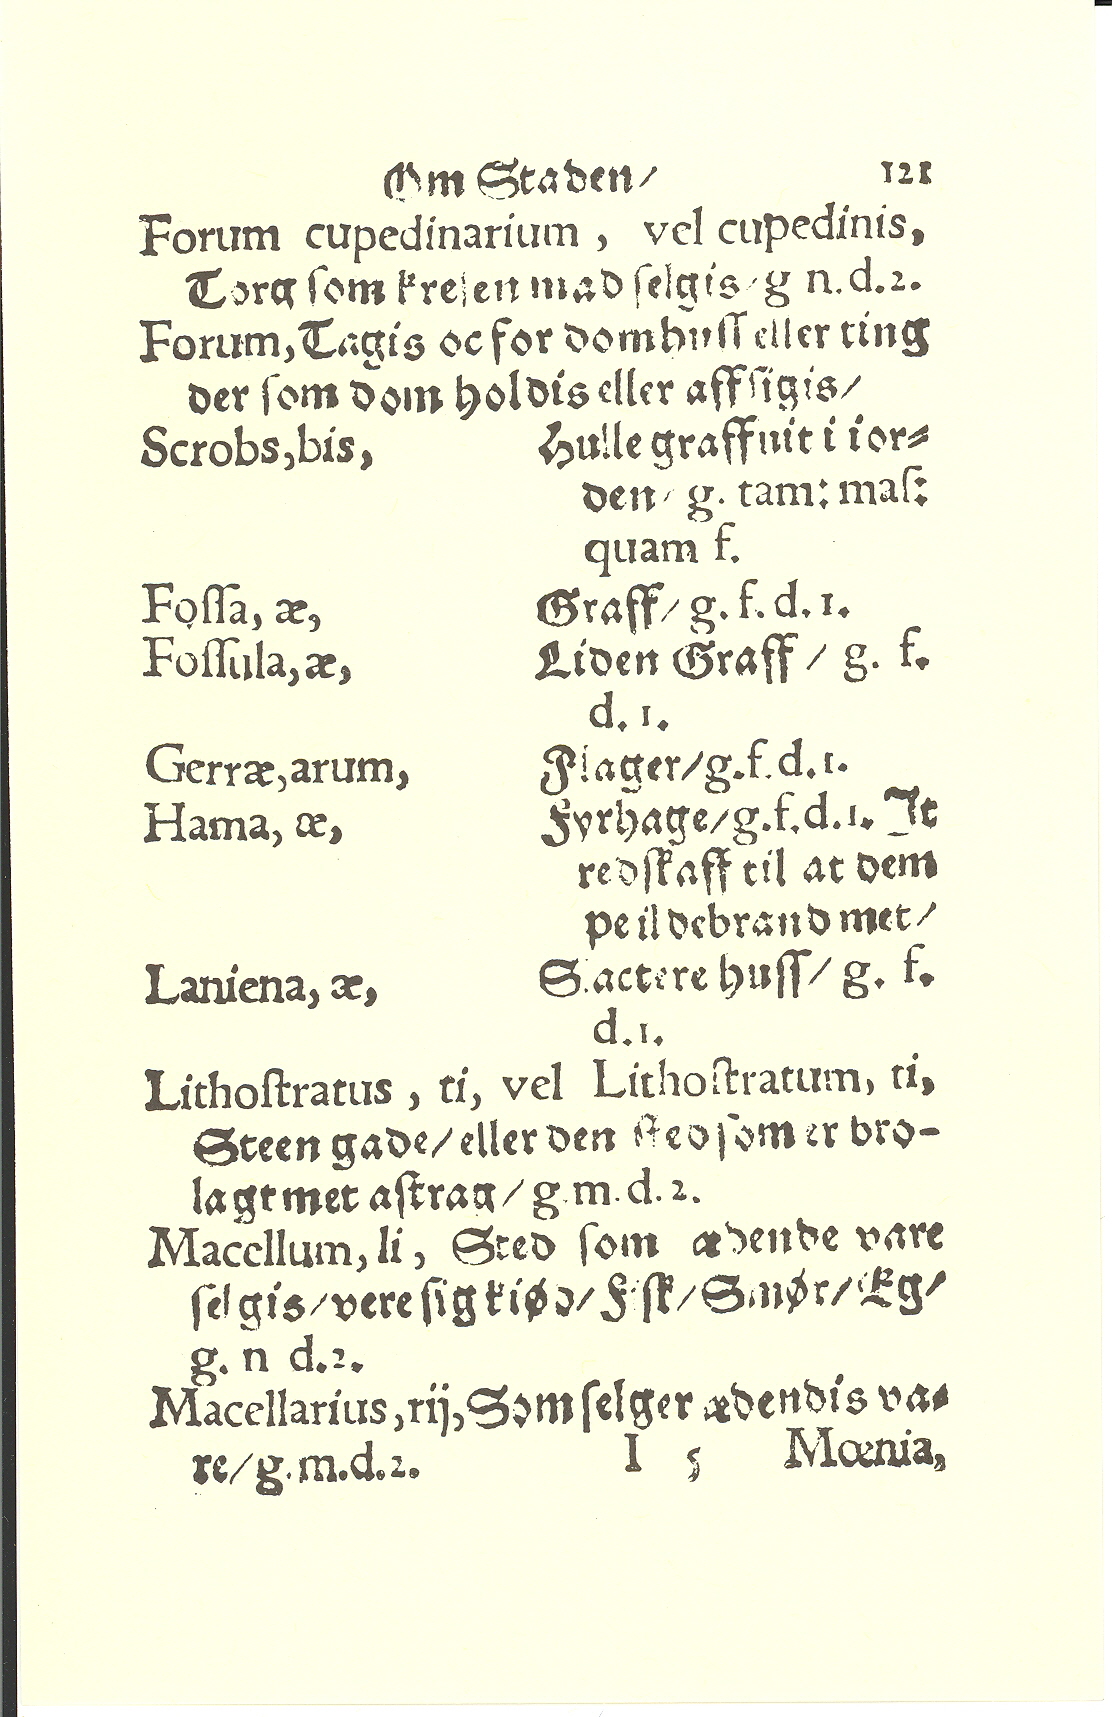 Om Staden/ 121
Forum cupedinarium, vel cupedinis,
Torg som kresen mad selgis/g n.d.2.
Forum, Tagis oc for domhuss eller ting
der som dom holdis eller affsigis/
Scrobs,bis, Hulle graffuit i ior⸗
den/ g. tam: maſ:
quam f.
Foſſa, æ, Graff/ g. f. d. 1.
Foſſula,æ, Liden Graff/ g. f.
d. 1.
Gerræ,arum, Plager/g.f.d.1.
Hama, æ, Fyrhage/g.f.d.1. It
redſkaff til at dem
pe ildebrand met/
Laniena, æ, Slactere huſſ/ g. f.
d.1.
Lithoſtratus, ti, vel Lithoſtratum, ti,
Steen gade/eller den ſted ſom er bro-
lagt met aſtrag/ g.m.d.2.
Macellum, li, Sted ſom ædende vare
ſelgis/vere ſig kiød/Fiſk/Smør/Eg/
g. n d.2.
Macellarius,rij,Som ſelger ædendis va⸗
re/g.m.d.2. I 5 Mœnia,